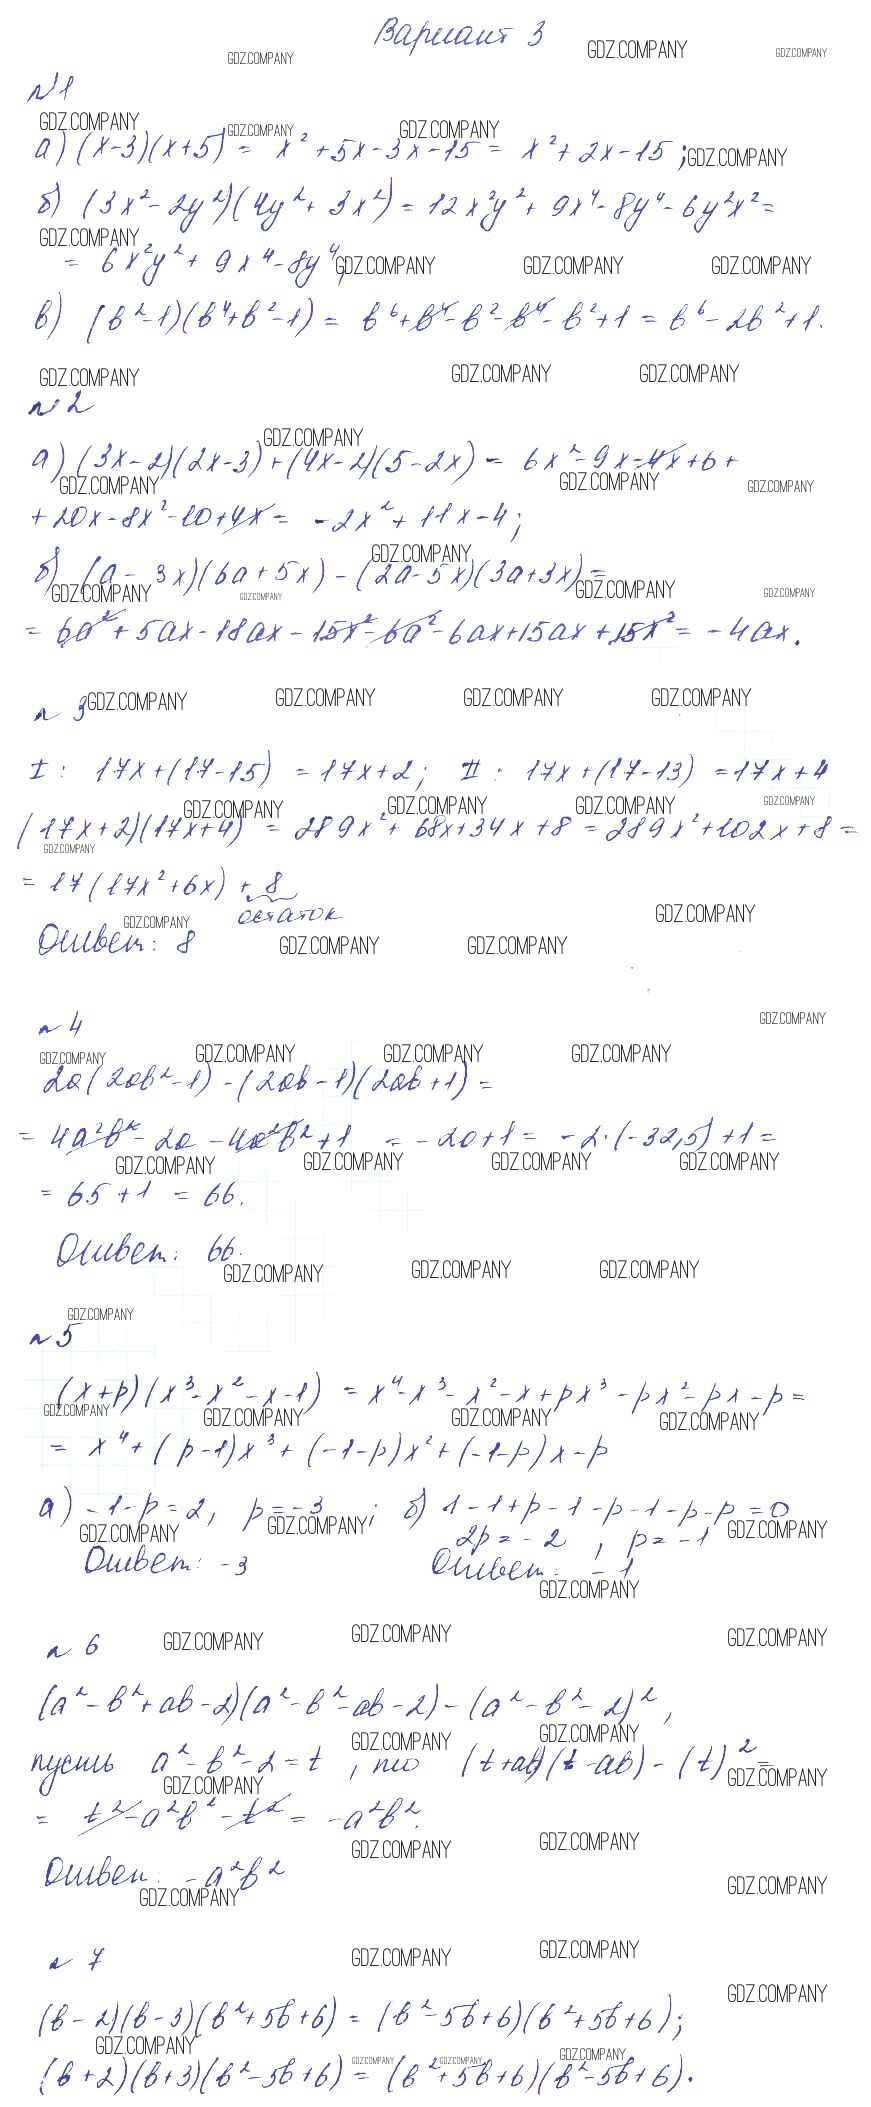 Вариант 3
GDZ.COMPANY GDZ.COMPANY GDZ.COMPANY
№1
GDZ.COMPANY GDZ.COMPANY GDZ.COMPANY
а) (x-3)(x+5) = x²+5x-3x-15 = x²+2x-15; GDZ.COMPANY
б) (3x²-2y²)(4y²+3x²) = 12x²y²+9x⁴-8y⁴-6y²x² =
GDZ.COMPANY
= 6x²y²+9x⁴-8y⁴; GDZ.COMPANY GDZ.COMPANY GDZ.COMPANY
в) (b²-1)(b⁴+b²-1) = b⁶+b⁴-b²-b⁴-b²+1 = b⁶-2b²+1.
GDZ.COMPANY GDZ.COMPANY GDZ.COMPANY
№2
GDZ.COMPANY
а) (3x-2)(2x-3)+(4x-2)(5-2x) = 6x²-9x-4x+6+
GDZ.COMPANY GDZ.COMPANY GDZ.COMPANY
+20x-8x²-10+4x = -2x²+11x-4;
GDZ.COMPANY
б) (a-3x)(6a+5x)-(2a-5x)(3a+3x) =
GDZ.COMPANY GDZ.COMPANY GDZ.COMPANY GDZ.COMPANY
= 6a²+5ax-18ax-15x²-6a²-6ax+15ax+15x² = -4ax.
№ 3 GDZ.COMPANY GDZ.COMPANY GDZ.COMPANY GDZ.COMPANY
I: 17x+(17-15) = 17x+2; II: 17x+(17-13) = 17x+4
GDZ.COMPANY GDZ.COMPANY GDZ.COMPANY GDZ.COMPANY
(17x+2)(17x+4) = 289x²+68x+34x+8 = 289x²+102x+8 =
GDZ.COMPANY
= 17(17x²+6x)+8
остаток
GDZ.COMPANY GDZ.COMPANY
Ответ: 8 GDZ.COMPANY GDZ.COMPANY
№ 4 GDZ.COMPANY
GDZ.COMPANY GDZ.COMPANY GDZ.COMPANY GDZ.COMPANY
2a(2ab²-1)-(2ab-1)(2ab+1) =
= 4a²b²-2a-4a²b²+1 = -2a+1 = -2·(-32,5)+1 =
GDZ.COMPANY GDZ.COMPANY GDZ.COMPANY GDZ.COMPANY
= 65+1 = 66.
Ответ: 66.
GDZ.COMPANY GDZ.COMPANY GDZ.COMPANY
GDZ.COMPANY
№5
(x+p)(x³-x²-x-1) = x⁴-x³-x²-x+px³-px²-px-p =
GDZ.COMPANY GDZ.COMPANY GDZ.COMPANY GDZ.COMPANY
= x⁴+(p-1)x³+(-1-p)x²+(-1-p)x-p
а) -1-p=2, p=-3; б) 1-1+p-1-p-1-p-p=0
GDZ.COMPANY GDZ.COMPANY GDZ.COMPANY
2p=-2, p=-1
Ответ: -3 Ответ: -1
GDZ.COMPANY
№ 6 GDZ.COMPANY GDZ.COMPANY GDZ.COMPANY
(a²-b²+ab-2)(a²-b²-ab-2)-(a²-b²-2)²,
GDZ.COMPANY GDZ.COMPANY
пусть a²-b²-2=t, то (t+ab)(t-ab)-(t)² =
GDZ.COMPANY GDZ.COMPANY
= t²-a²b²-t² = -a²b².
GDZ.COMPANY GDZ.COMPANY
Ответ: -a²b²
GDZ.COMPANY GDZ.COMPANY
№ 7 GDZ.COMPANY GDZ.COMPANY
GDZ.COMPANY
(b-2)(b-3)(b²+5b+6) = (b²-5b+6)(b²+5b+6);
GDZ.COMPANY GDZ.COMPANY GDZ.COMPANY GDZ.COMPANY
(b+2)(b+3)(b²-5b+6) = (b²+5b+6)(b²-5b+6).